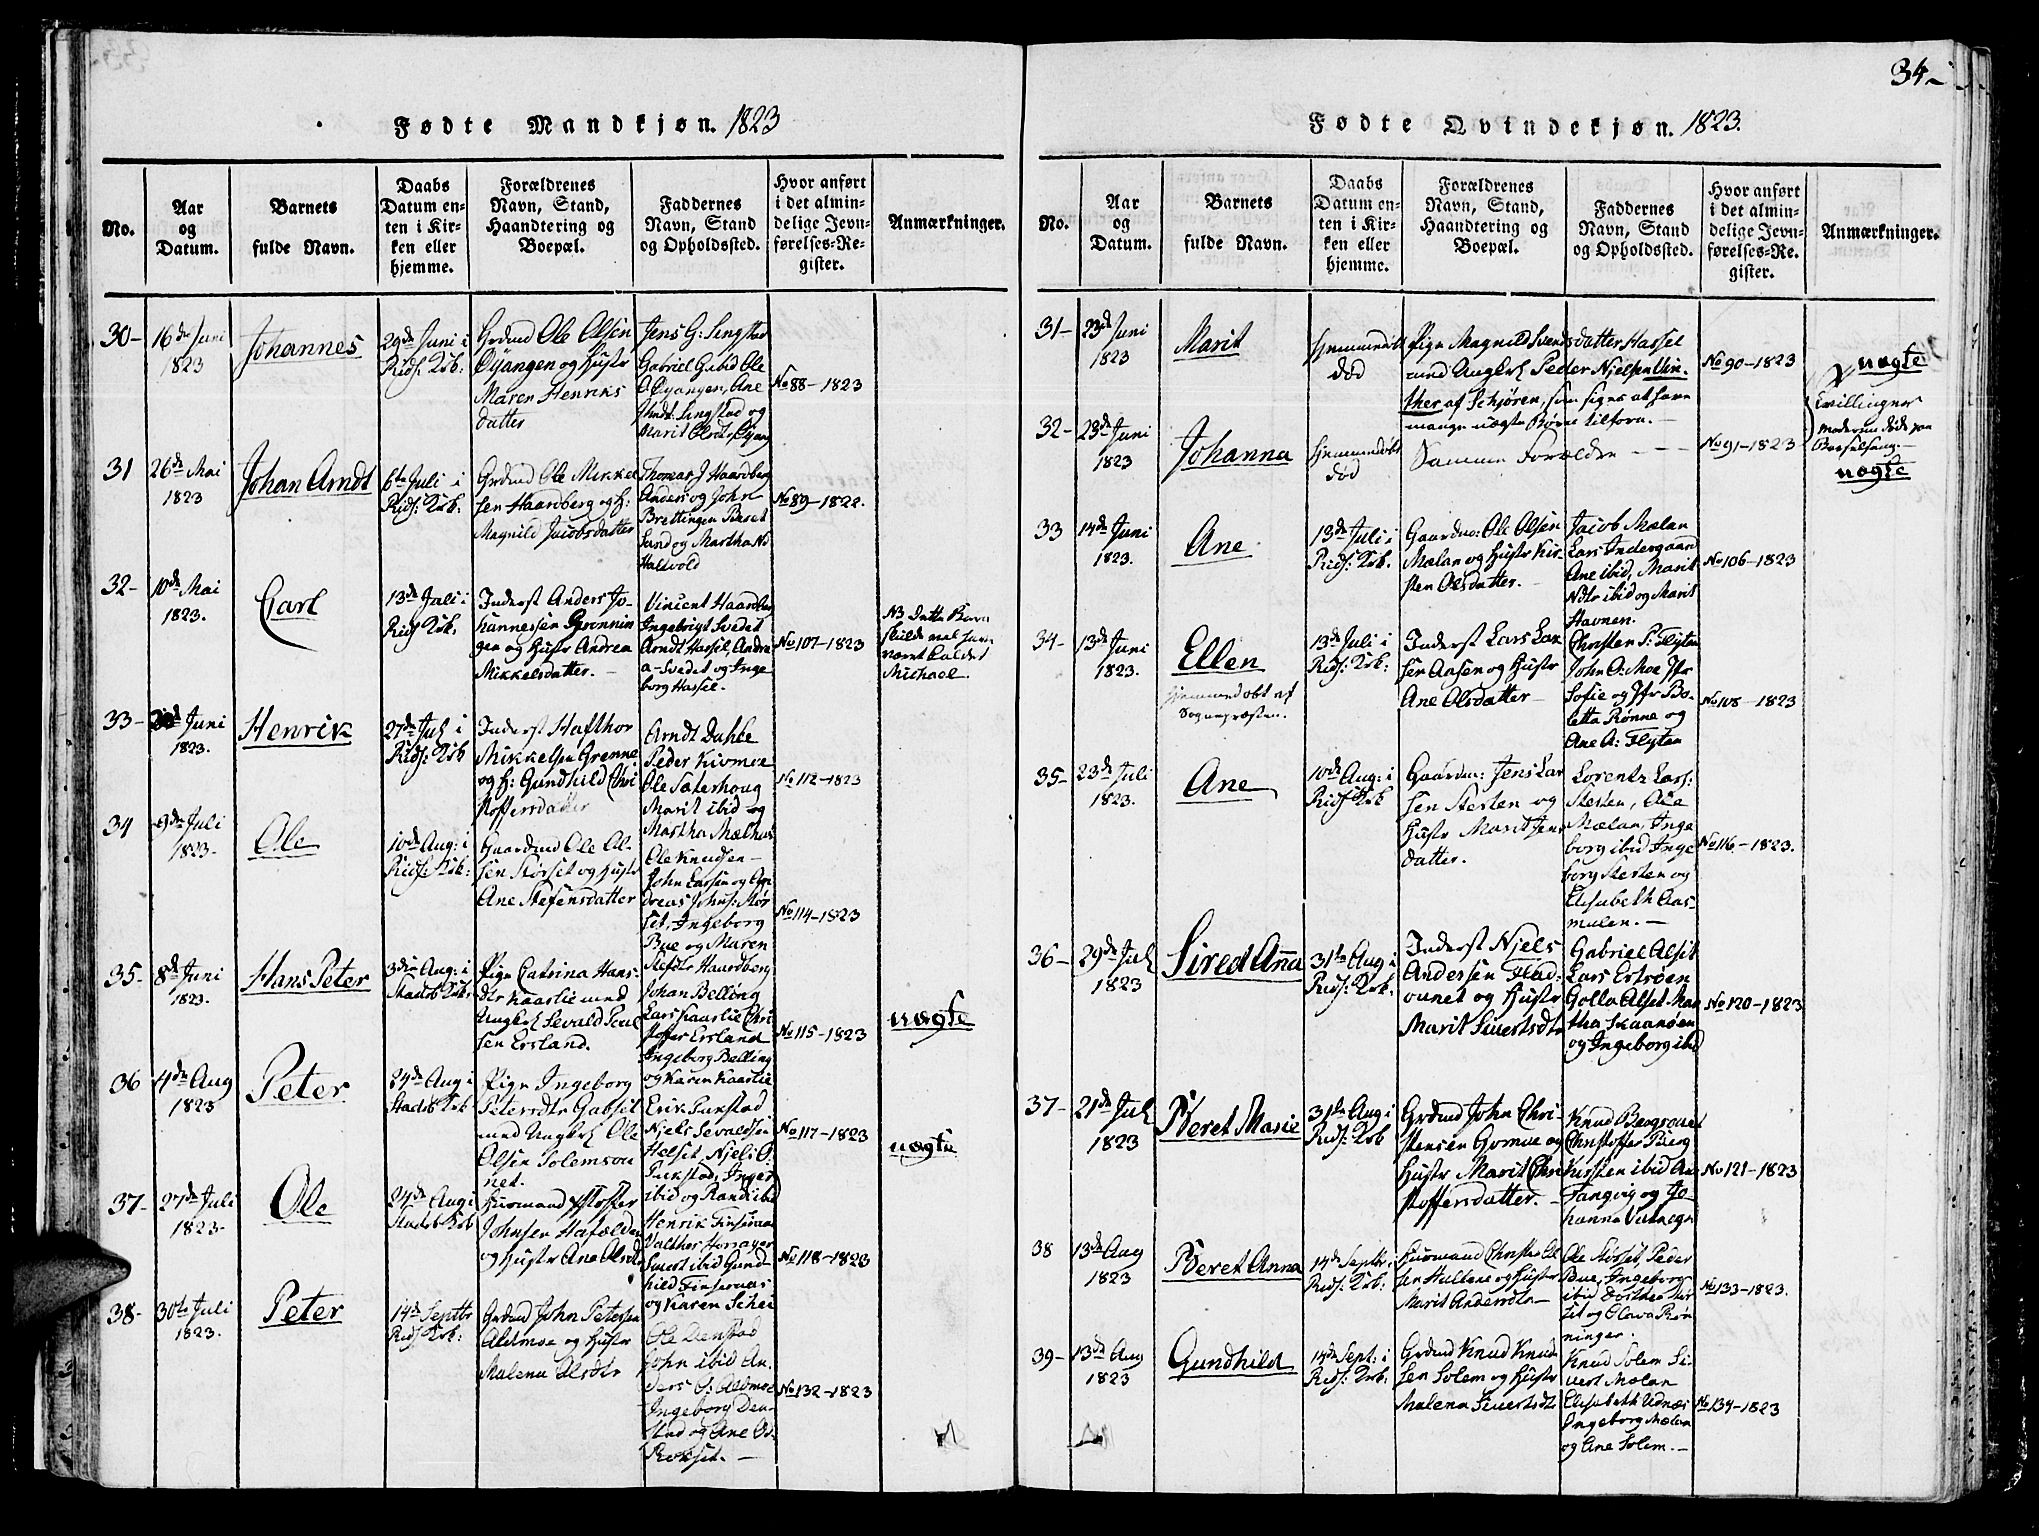 34
Fødte Mandkjøn. 1823
No.
Aar
og
Datum.
Barnets
fulde Navn.
Daabs
Datum en-
ten i Kir-
ken eller
hjemme.
Forældrenes
Navn, Stand,
Haandtering og
Boepæl.
Faddernes
Navn, Stand
og Opholdssted.
Hvor anført
i det almin-
delige Jevn-
førelses-Re-
gister.
Anmærkninger.
30-
16de Juni
1823
Johannes
29de Juni i
Rids: Krk:
Grdmd Ole Olsen
Øyangen og Hustr
Maren Henriks
datter
Jens G: Singstad
Gabriel G: ibid Ole
O Øyangen, Ane
Singstad og
Marit Olsdtr Øyang
No 88-1823
31
26de Mai
1823
Johan Arndt
6te Juli i
Rids: Krk.
Grdmd Ole Mikkel
sen Haardberg og H:
Magnild Jacobsdatter
Thomas J Haardberg
Anders og John
Brettingen Beret
Sund og Martha N
Haltvold
No 89-1822.
32-
10de Mai
1823.
Carl
13de Juli i
Rids Krk.
Inderst Anders Jo-
hannessen Grønnin
gen og Hustr Andrea
Mikkelsdatter.
Vincent Haardberg
Ingebrigt Svedet
Arndt Hassel, Andre
a Svedet og Inge
borg Hassel.
No 107-1823
NB dette Barn
skilde vel have
været kaldet
Michael.
33-
Juni
1823.
Henrik
27de Jul i
Rids: Krk
Inderst Hafthor
Mikkelsen Grønne
og H: Gundhild Chri
stoffersdatter
Arndt Dahle
Peder Kivmoe
Ole Sæterhoug
Marit ibid og
Martha Mælhus
No 112-1823
34
9de Juli
1823-
Ole
10de Aug: i
Rids: Krk:
Gaardmd Ole Ol-
sen Størset og Hustr
Ane Stefensdatter
Ole Knudsen-
John Larsen og An
dreas Johns: Stør
set, Ingeborg
Bue og Maren
Stefdtr Haardberg
No 114-1823
35-
8de Juni
1823.
Hans Peter
3die Aug: i
Stads Krk.
Pige Catrina Hans-
dtr Kaarlie med
Ungkrl Sevald Paul
sen Ersland.
Johan Belling
Lars Kaarlie Chri
stoffer Ersland
Ingeborg Belling
og Karen Kaarlie
No 115-1823
uægte
36
4de Aug
1823
Peter
24de Aug i
Stads Krk
Pige Ingeborg
Petersdtr Gabset
med Ungkrl Ole
Olsen Solemsou
net.
Erik Sukstad
Niels Sevaldsen
Helset, Njels O.
Sukstad, Inger
ibid og Randi ibid
No 117-1823
uægte
37-
27de Juli
1823-
Ole
24de Aug i
Stads Krk
Huusmand Kristofer
Johnsen Hafælden
og Hustr Ane Olsdtr
Henrik Finseraas
Valther Horrajer
Sivert ibid Gund
hild Finseraas
og Karen Schei
No 118-1823
38-
30te Juli
1823.
Peter
14de Septbr
Rids Krk:
Grdmd John Petersen
Aldmoe og Hustr
Malena Olsdtr
Ole Denstad
John ibid An
ders O: Aldmoe
Ingeborg Den-
stad og Ane O:
Rokset.
No 132-1823
Fødte Qvindekjøn. 1823.
No.
Aar
og
Datum.
Barnets
fulde Navn.
Daabs
Datum en-
ten i Kir-
ken eller
hjemme.
Forældrenes
Navn, Stand,
Haandtering og
Boepæl.
Faddernes
Navn, Stand
og Opholdssted.
Hvor anført
i det almin-
delige Jevn-
førelses-Re-
gister.
Anmærkninger.
31-
23de Juni
1823
Marit
hjemmedøbt
død
Pige Magnild Svendsdatter Hassel
med Ungkrl Peder Njelsen Uin-
ther af Schjøren, som siges at have
mange uægte Børn tilforn.-
No 90-1823
uægte
Tvillinger
moderen døde paa
Barselseng.-
32-
23de Juni
1823
Johanna
hjemmedøbt
død
Samme Forældre - - -
No 91-1823
uægte
33
14de Juni
1823.
Ane
13de Juli i
Rids: Krk.
Gaardm: Ole Olsen
Mælan og Hustr Kir-
sten Olsdatter.-
Jacob Mælan
Lars Indergaard
Ane ibid, Marit
Ndtr ibid og Marit
Havnen.
No 106-1823
34-
13de Juni
1823.
Ellen
hjemmedøbt af
Sognepræsten.
13de Juli i
Rids: Krk:
Inderst Lars Lar
sen Aasen og Hustr
Ane Olsdatter-
Christen P: Flyten
John O: Moe Jfr
Sofie og Jfr Bo-
letta Rønne og
Ane A: Flyten
No 108-1823
35-
23de Juli
1823.
Ane
10de Aug: i
Rids Krk
Gaardm: Jens Lar
sen Sterten og
Hustr Marit Jens
datter.
Lorentz Lars:
Sterten, Ane
Mælan, Inge
borg ibid Inge
borg Sterten og
Elisabeth Aas-
mulen.-
No 116-1823.
36-
29de Jul
1823
Sired Anna
31te Aug i
Rids: Krk.
Inderst Njels
Andersen Flad-
ounet og Hustr
Marit Sivertsdtr
Gabriel Alset
Lars Estrøen
Golla Alset Mar
tha Skaanøen
og Ingeborg ibid
No 120-1823
37-
21de Jul
1823
Beret Marie
31te Aug i
Rids: Krk
Grdmd John Chri-
stensen Gomoe og
Hustr Marit Chri
stoffersdatter.-
Knud Bergsounet
Christoffer Berg
Kirsten ibid An
Fangvig og Jo-
hanna Vatnegn
No 121-1823
38
13de Aug
1823
Beret Anna
14de Septbr i
Rids: Krk:
Huusmand Christen Ol
sen Hultene og Hustr
Marit Andersdtr-
Ole Størset, Peder
Bue, Ingeborg
ibid Dorthea Stør
set og Olava Røn
ninger.
No 133-1823.
39-
13de Aug
1823
Gundhild
14de Sept: i
Rids: Krk.
Grdmd Knud Knud
sen Solem og Hustr
Malena Sivertsdtr
Knud Solem Si-
vert Mælan
Elisabeth Udnæs
Ingeborg Mælan
og Ane Solem.-
No 134-1823